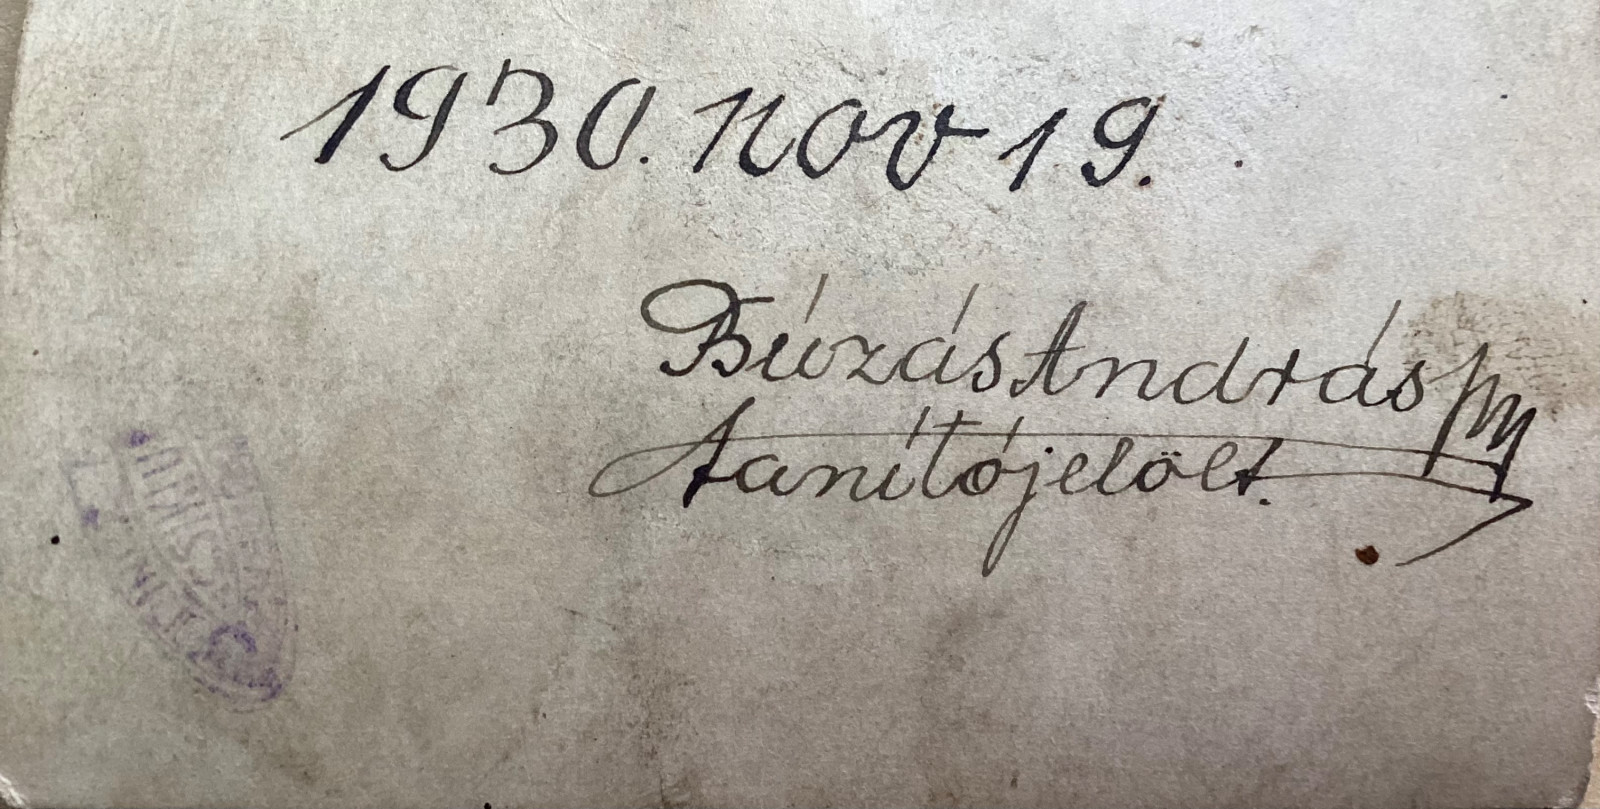 1930. nov 19.
Búzás András
tanítójelölt.